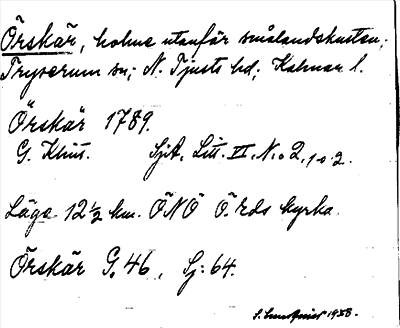 Örskär, holme utanför smålandskusten,
Tryserum sn; N. Tjusts hd; Kalmar l.
Örskär 1789.
G. Klint. Sjöt, Litt. VI, N:o 2, 1 o. 2.
Läge 12½ km. ÖNÖ Ö. rds kyrka.
Örskär G. 46, Sj: 64.
1938.